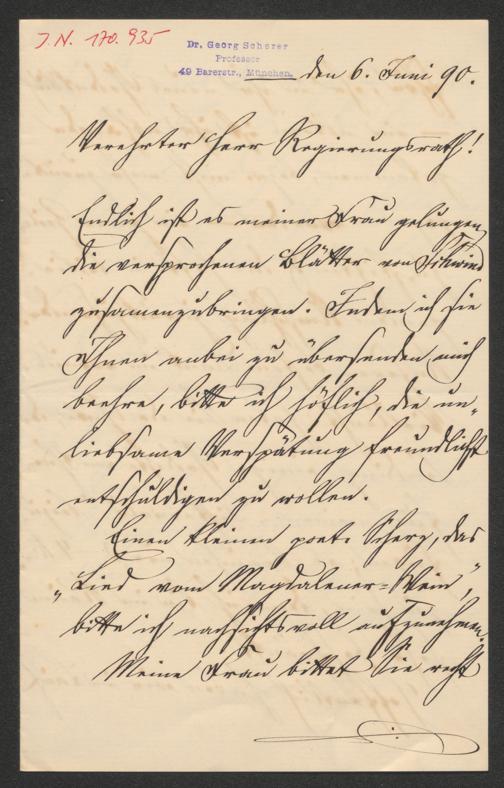 J. N. 170.935
Dr. Georg Scherer
Professor
49 Barerstr., München.
den 6. Juni 90.
Verehrter Herr Regierungsrath!
Endlich ist es meiner Frau gelungen,
die versprochenen Blätter von Schwind
zusamenzubringen. Indem ich sie
Ihnen anbei zu übersenden mich
beehre, bitte ich höflich, die un-
liebsame Verspätung freundlichst
entschuldigen zu wollen.
Einen kleinen poet. Scherz, das
„Lied vom Magdalener-Wein“,
bitte ich nachsichtsvoll aufzunehmen.
Meine Frau bittet Sie recht